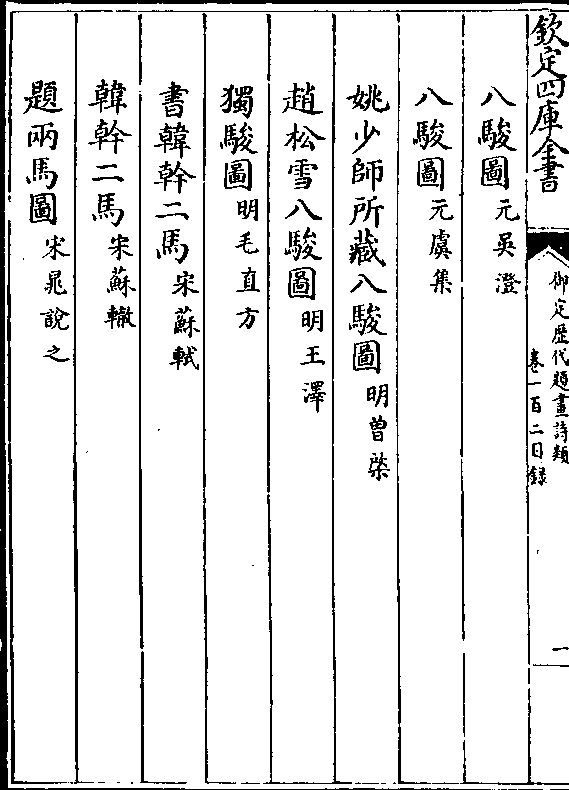 欽定四庫全書
御定歴代題畫詩類
卷一百二目録
一
八駿圖元吳澄
八駿圖元虞集
姚少師所藏八駿圖明曽棨
趙松雪八駿圖明王澤
獨駿圖明毛直方
書韓幹二馬宋蘇軾
韓幹二馬宋蘇轍
題兩馬圖宋晁說之